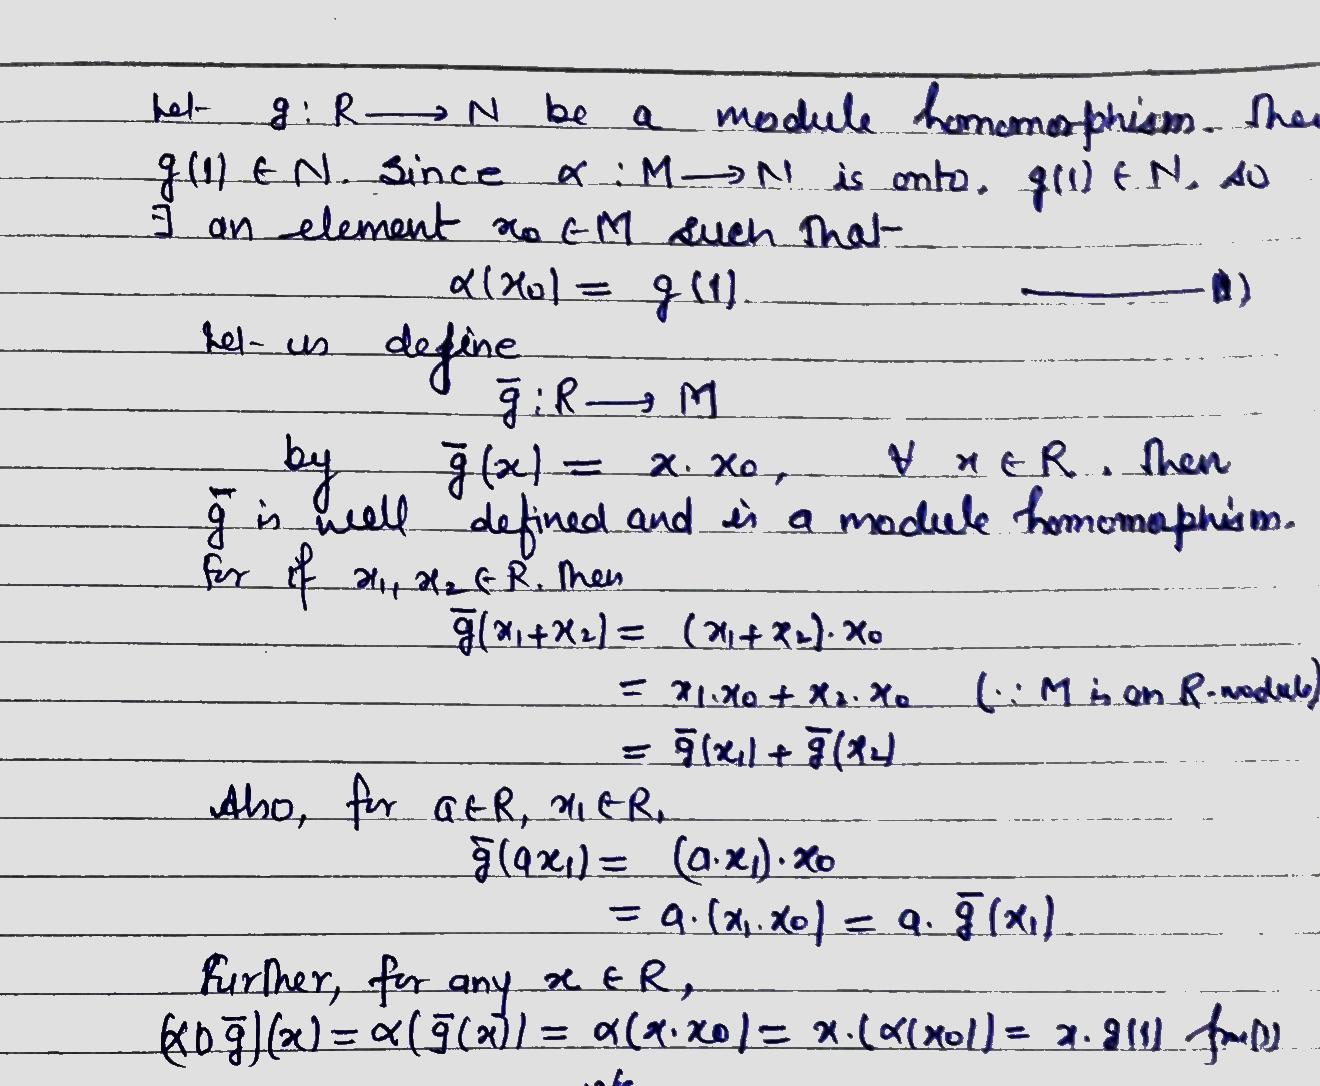 Let g : R ⟶ N be a module homomorphism. Then
g(1) ∈ N. Since α : M ⟶ N is onto, g(1) ∈ N, so
∃ an element x₀ ∈ M such that
α(x₀) = g(1). ——— (1)
Let us define
ḡ : R ⟶ M
by ḡ(x) = x. x₀, ∀ x ∈ R. Then
ḡ is well defined and is a module homomorphism.
For if x₁, x₂ ∈ R. Then
ḡ(x₁+x₂) = (x₁+x₂). x₀
= x₁.x₀ + x₂.x₀ (∵ M is an R-module)
= ḡ(x₁) + ḡ(x₂)
Also, for a∈R, x₁∈R,
ḡ(ax₁) = (a.x₁). x₀
= a.(x₁.x₀) = a. ḡ(x₁)
Further, for any x ∈ R,
(α o ḡ)(x) = α(ḡ(x)) = α(x.x₀) = x.(α(x₀)) = x. g(1) from(1)